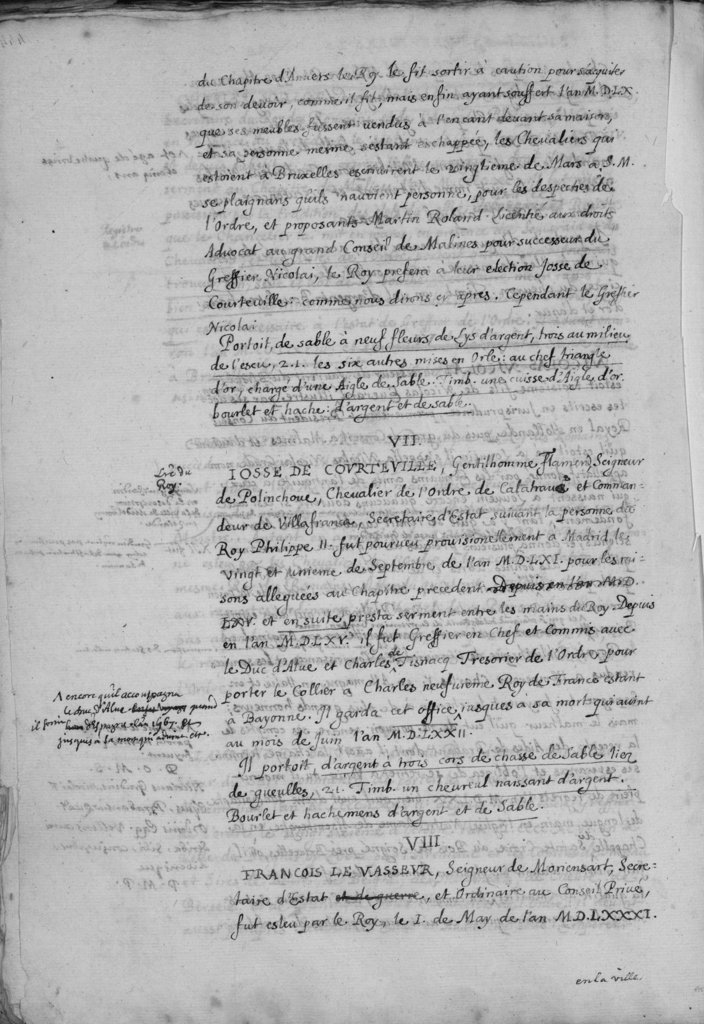 du Chapitre d'Anvers le Roy le fit sortir à caution pour s'aquiter
de son devoir, comme il fit, mais enfin ayant souffert l'an M.D.LX.
que ses meubles fussent vendus à l'encant devant sa maison,
et sa personne mesme, s'estant eschappée, les Chevaliers qui
estoient à Bruxelles escrivirent le vingtieme de Mars à S. M.
se plaignans qu'ils n'avoient personne, pour les despeches de
l'Ordre, et proposants Martin Roland Licentié aux droits
Advocat au grand Conseil de Malines pour successeur du
Greffier Nicolai, le Roy prefera à leur election Josse de
Courteville: comme nous dirons cy apres. Cependant le Greffier
Nicolai
Portoit, de sable à neuf fleurs de Lys d'argent, trois au milieu
de l'escu, 2.1. les six autres mises en Orle: au chef triangle
d'or, chargé d'une Aigle de Sable. Timb. une cuisse d'Aigle d'or.
bourlet et hache: d'argent et de sable.
VII.
Roy.
IOSSE DE COVRTEVILLE, Gentilhomme Flamen, Seigneur
de Polinchove, Chevalier de l'Ordre de Calatrava et Comman-
deur de Villafranca, Secretaire d'Estat suivant la personne du
Roy Philippe II. fut pourveu provisionellement à Madrid, le
vingt et unieme de Septembre de l'an M.D.LXI. pour les rai-
sons alleguées au Chapitre precedent. Depuis en l'an M.D.
LXV. et en suite presta serment entre les mains du Roy. Depuis
en l'an M.D.LXV. il fut Greffier en Chef et Commis avec
le Duc d'Alve et Charles de Tisnacq Tresorier de l'Ordre, pour
porter le Collier à Charles neufvieme Roy de France estant
à Bayonne. Il garda cet office ^ jusques à sa mort qui avint
au mois de Juin l'an M.D.LXXII.
^ encore qu'il accompagna
le duc d'Alve quand
il d'Espagne l'an 1567. et
jusques à sa mort qui avint etc.
Il portoit, d'argent à trois cors de chasse de Sable lieз
de gueulles, 2.1. Timb. un chevreul naissant d'argent.
Bourlet et hachemens d'argent et de Sable.
VIII
FRANCOIS LE VASSEVR, Seigneur de Moriensart, Secre-
taire d'Estat et de guerre, et Ordinaire au Conseil Privé,
fut esleu par le Roy, le I. de May de l'an M.D.LXXXI.
en la ville